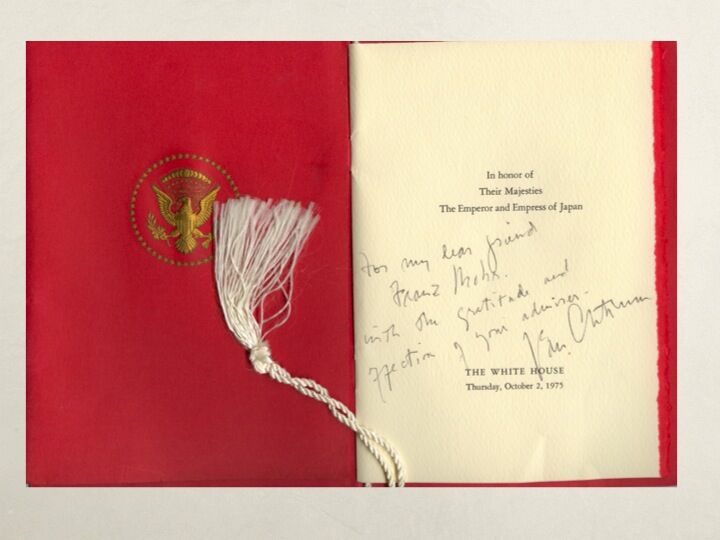 In honor of
Their Majesties
The Emperor and Empress of Japan
For my dear friend
Franz Mohr.
with the gratitude and
affection of your admirer.
Van Cliburn
THE WHITE HOUSE
Thursday, October 2, 1975